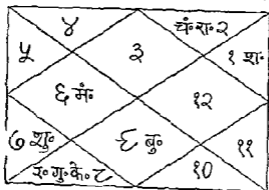 ४ चं॰रा॰२
५ ३ १ श॰
६ मं॰ १२
७ शु॰ ९ बु॰ ११
र॰गु॰के॰८ १०